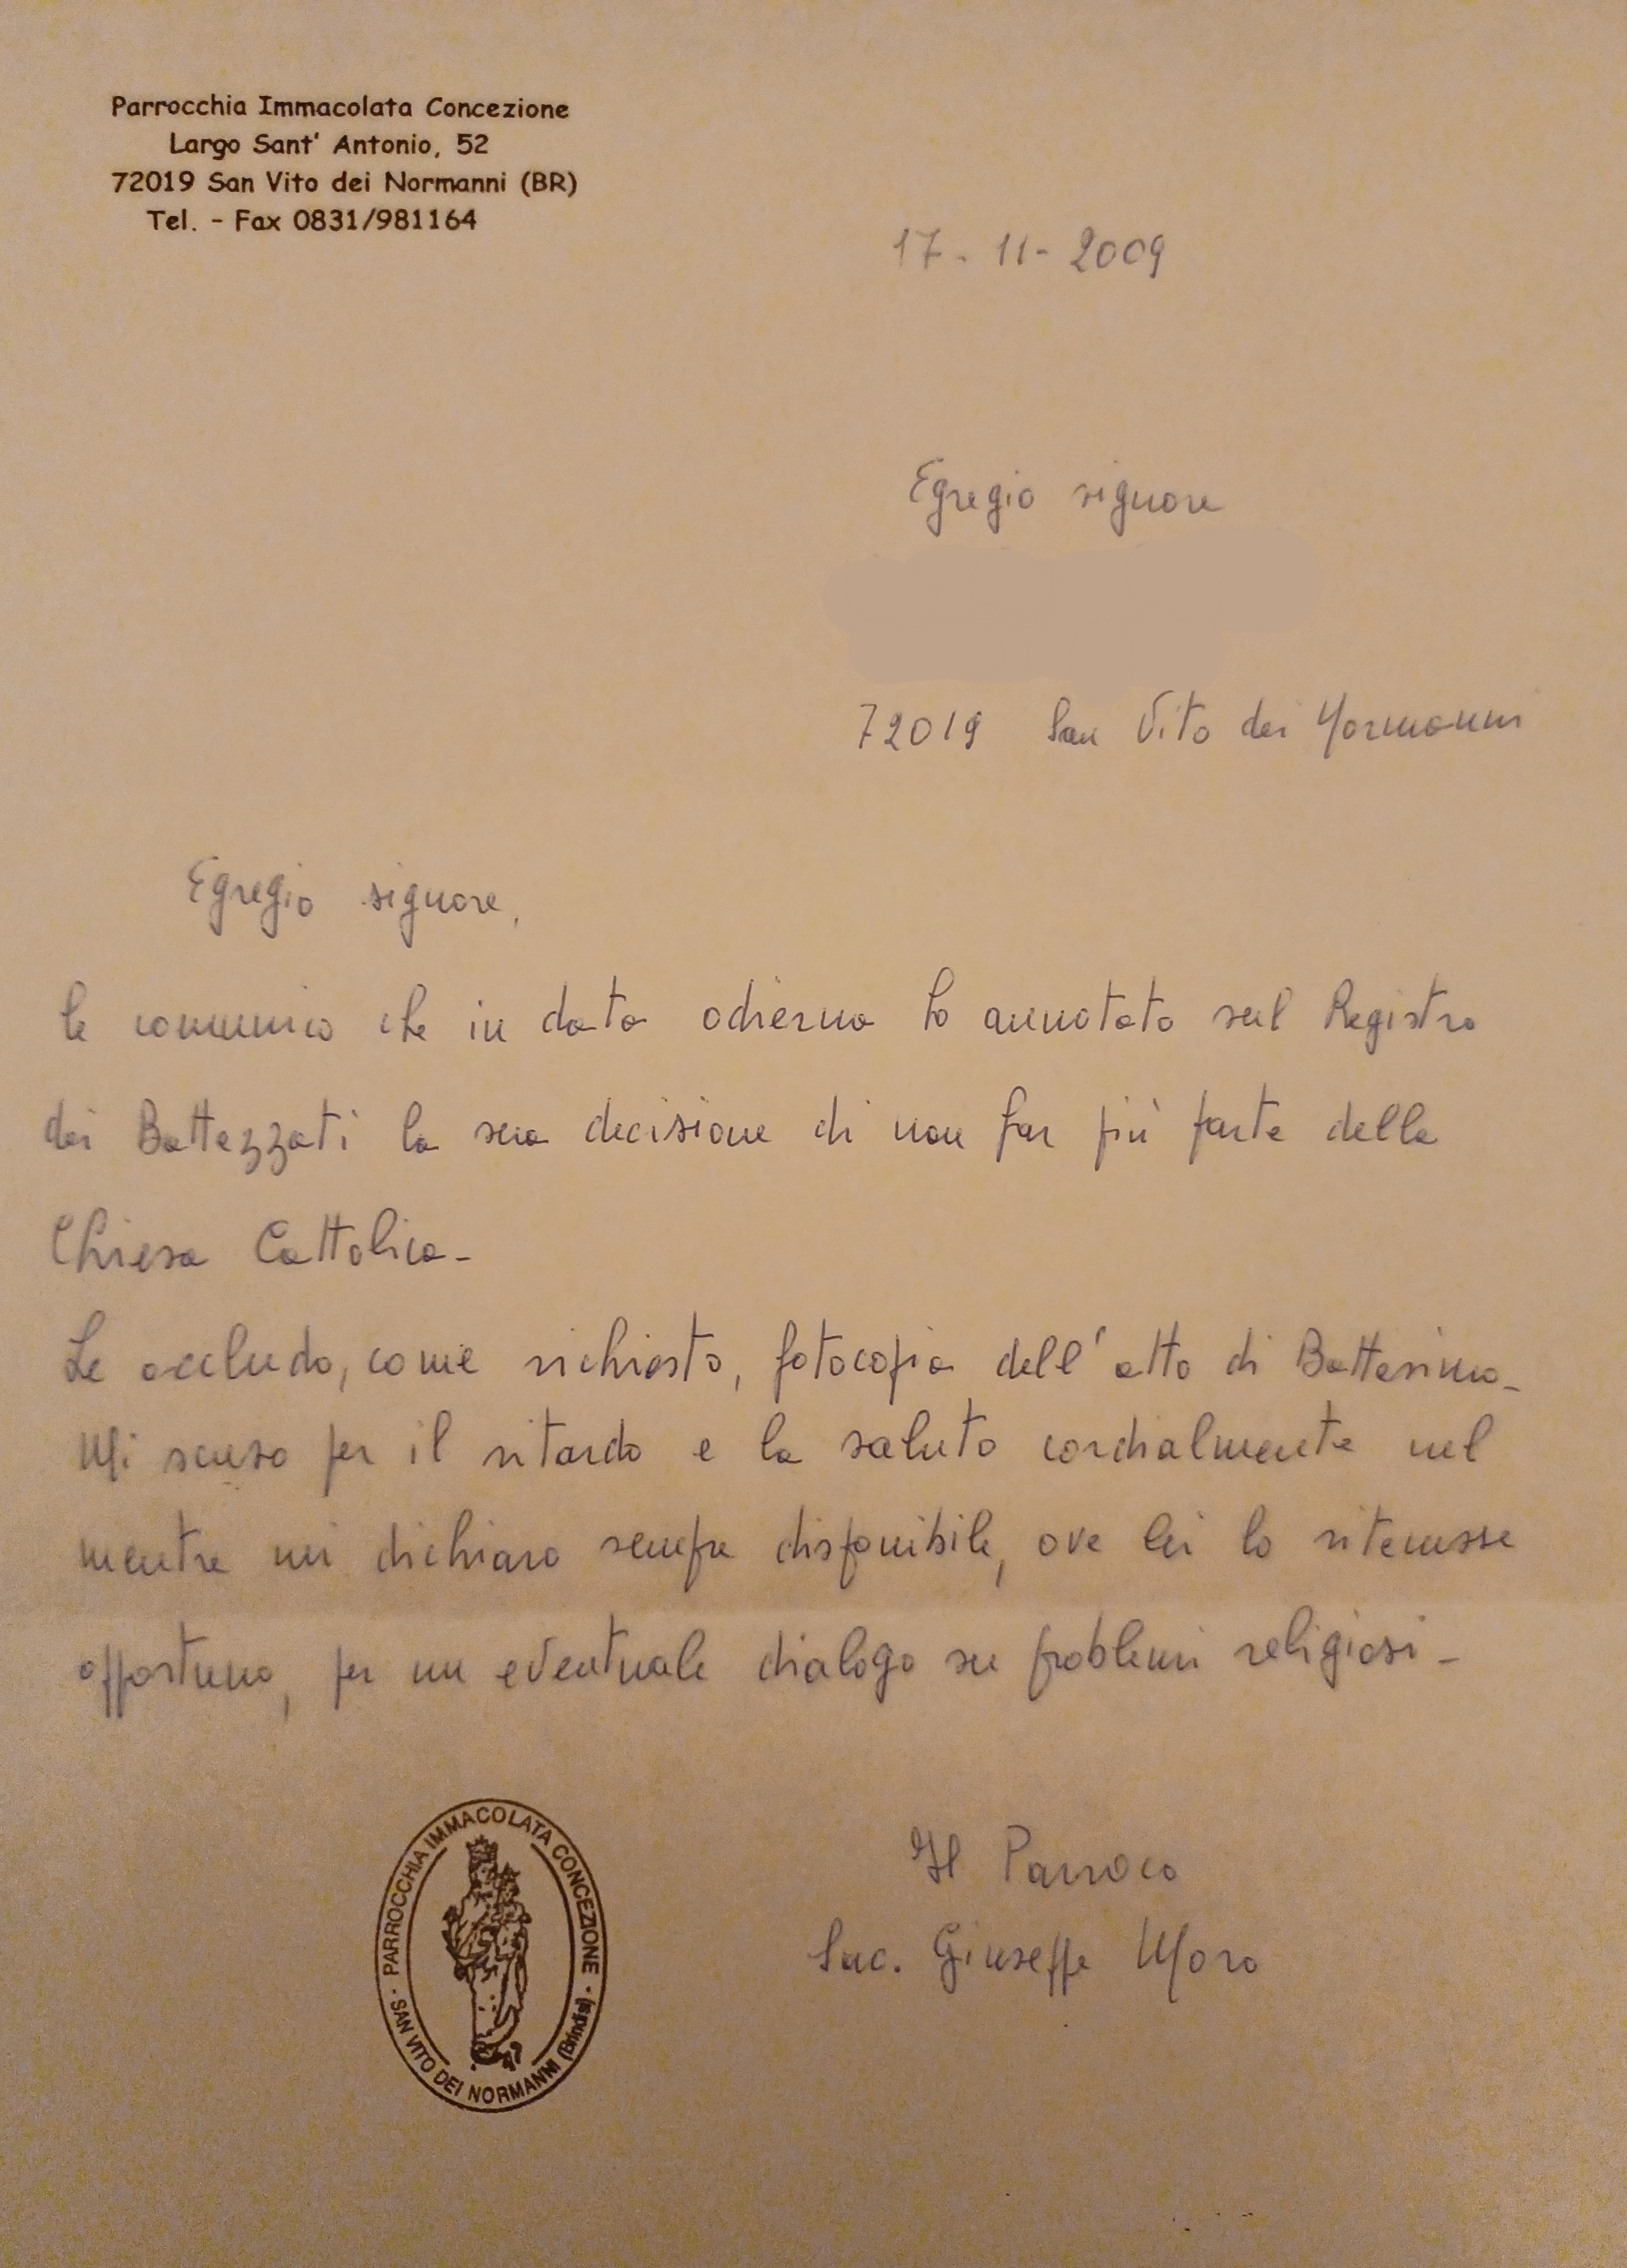 Parrocchia Immacolata Concezione
Largo Sant' Antonio, 52
72019 San Vito dei Normanni (BR)
Tel. - Fax 0831/981164
17-11-2009
Egregio signore
72019 San Vito dei Normanni
Egregio signore,
le comunico che in data odierna ho annotato sul Registro
dei Battezzati la sua decisione di non far più parte della
Chiesa Cattolica-
Le accludo, come richiesto, fotocopia dell'atto di Battesimo-
Mi scuso per il ritardo e la saluto cordialmente nel
mentre mi dichiaro sempre disponibile, ove lei lo ritenesse
opportuno, per un eventuale dialogo su problemi religiosi-
Il Parroco
Sac. Giuseppe Moro
PARROCCHIA IMMACOLATA CONCEZIONE
· SAN VITO DEI NORMANNI (Brindisi) ·